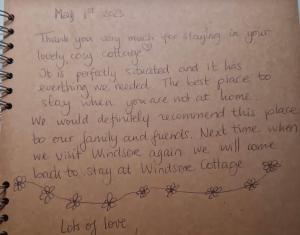 May 1st 2023
Thank you very much for staying in your
lovely cosy cottage♡
It is perfatly situated and it has
everthing we needed. The best place to
stay when you are not at home.
We would definitely recommend this place
to our family and friends. Next time when
we visit Windsor again we will come
back to stay at Windsor Cottage
Lots of love,